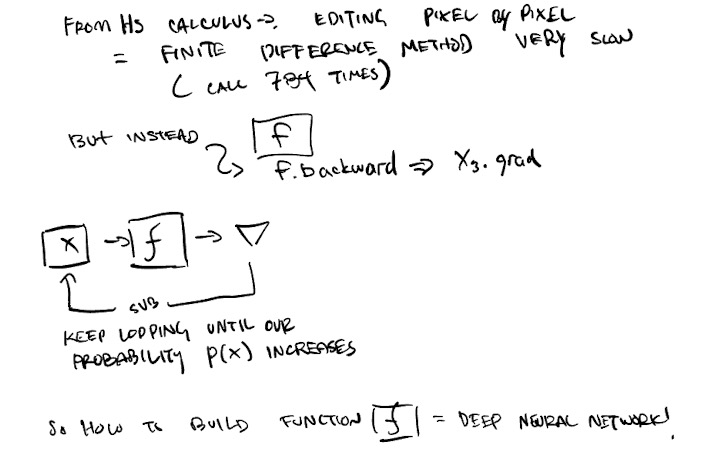 FROM HS CALCULUS → EDITING PIXEL by PIXEL
= FINITE DIFFERENCE METHOD VERY SLOW
( CALL 784 TIMES)
BUT INSTEAD f
f.backward ⇒ X3.grad
x → f → ∇
SUB
KEEP LOOPING UNTIL OUR
PROBABILITY P(X) INCREASES
So HOW TO BUILD FUNCTION f = DEEP NEURAL NETWORK!